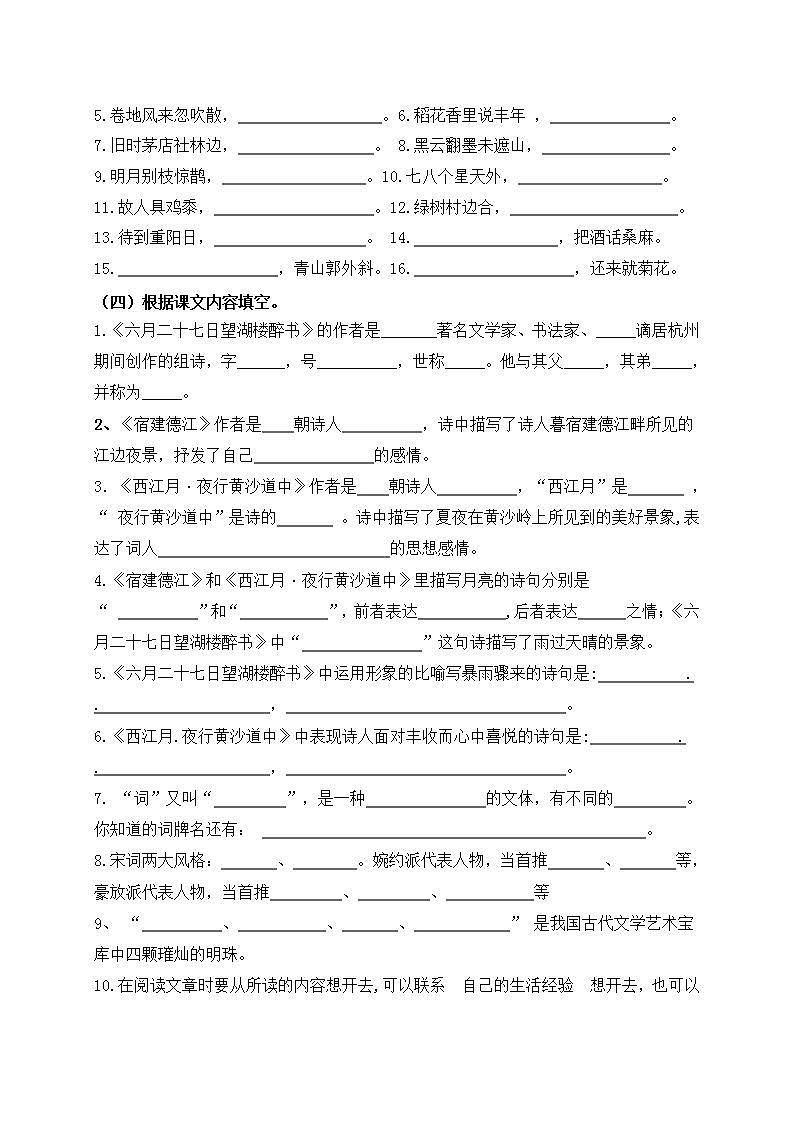 5.卷地风来忽吹散，__________________。6.稻花香里说丰年 ，_______________。
7.旧时茅店社林边，_________________。 8.黑云翻墨未遮山，________________。
9.明月别枝惊鹊，__________________。10.七八个星天外，__________________。
11.故人具鸡黍，____________________。12.绿树村边合，_____________________。
13.待到重阳日，___________________。 14.__________________，把酒话桑麻。
15.____________________，青山郭外斜。16.____________________，还来就菊花。
（四）根据课文内容填空。
1.《六月二十七日望湖楼醉书》的作者是_______著名文学家、书法家、_____谪居杭州
期间创作的组诗，字______，号__________，世称_____。他与其父_____，其弟_____，
并称为_____。
2、《宿建德江》作者是____朝诗人__________，诗中描写了诗人暮宿建德江畔所见的
江边夜景，抒发了自己_______________的感情。
3. 《西江月·夜行黄沙道中》作者是____朝诗人__________，“西江月”是_______ ，
“ 夜行黄沙道中”是诗的_______ 。诗中描写了夏夜在黄沙岭上所见到的美好景象,表
达了词人_____________________________的思想感情。
4.《宿建德江》和《西江月·夜行黄沙道中》里描写月亮的诗句分别是
“ __________”和“___________”，前者表达___________,后者表达______之情；《六
月二十七日望湖楼醉书》中“_______________”这句诗描写了雨过天晴的景象。
5.《六月二十七日望湖楼醉书》中运用形象的比喻写暴雨骤来的诗句是:___________.
.______________________，___________________________________。
6.《西江月.夜行黄沙道中》中表现诗人面对丰收而心中喜悦的诗句是:___________.
.______________________，___________________________________。
7. “词”又叫“_________”，是一种_______________的文体，有不同的_________。
你知道的词牌名还有： ________________________________________________。
8.宋词两大风格：_______、________。婉约派代表人物，当首推_______、_______等，
豪放派代表人物，当首推_________、_________、___________等
9、 “__________、___________、_______、____________” 是我国古代文学艺术宝
库中四颗璀灿的明珠。
10.在阅读文章时要从所读的内容想开去,可以联系  自己的生活经验  想开去，也可以